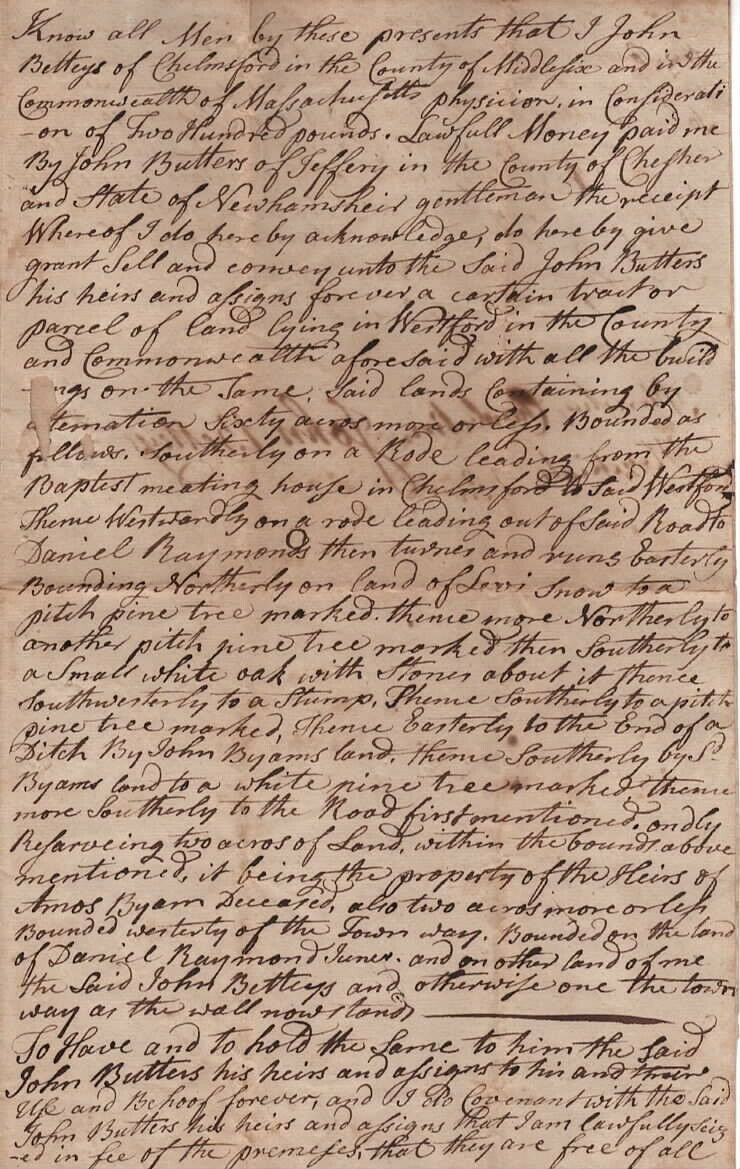 Know all Men by these presents that I John
Betteys of Chelmsford in the County of Middlesix and in the
Commonwealth of Massachusetts physicion, in Considerati
-on of Two Hundred pounds. Lawfull Money paid me
By John Butters of Jeffery in the County of Chesher
and State of Newhamsheir gentleman the receipt
Whereof I do hereby acknowledge, do hereby give
grant Sell and convey unto the Said John Butters
his heirs and assigns forever a cartain tract or
parcel of land lying in Westford in the County
and Commonwealth aforesaid with all the build
-ings on the Same, Said lands Containing by
stemation Sixty acros more or less. Bounded as
follows. Southerly on a Rode leading from the
Baptest meating house in Chelmsford to Said Westford
Thence Westwardly on a rode leading out of Said Road to
Daniel Raymonds then turnes and runs Easterly
Bounding Northerly on land of Levi Snow to a
pitch pine tree marked. thence more Northerly to
another pitch pine tree marked then Southerly to
a Small white oak with Stones about it thence
Southwesterly to a Stump, Thence Southerly to a pitch
pine tree marked, Thence Easterly to the End of a
Ditch By John Byams land, thence Southerly by Sd
Byams land to a white pine tree marked thence
more Southerly to the Road first mentioned, ondly
Resarveing two acros of Land, within the bounds above
mentioned, it being the property of the Heirs of
Amos Byam Deceased, also two acros more or less
Bounded westerly of the Town way. Bounded on the land
of Daniel Raymond Juner. and on other land of me
the Said John Betteys and otherwise one the town
way as the wall now stands
To Have and to hold the Same to him the Said
John Butters his heirs and assigns to his and their
Use and Behoof forever, and I do Covenant with the Said
John Butters his heirs and assigns that I am lawfully Seiz
-ed in fee of the premeses, that they are free of all